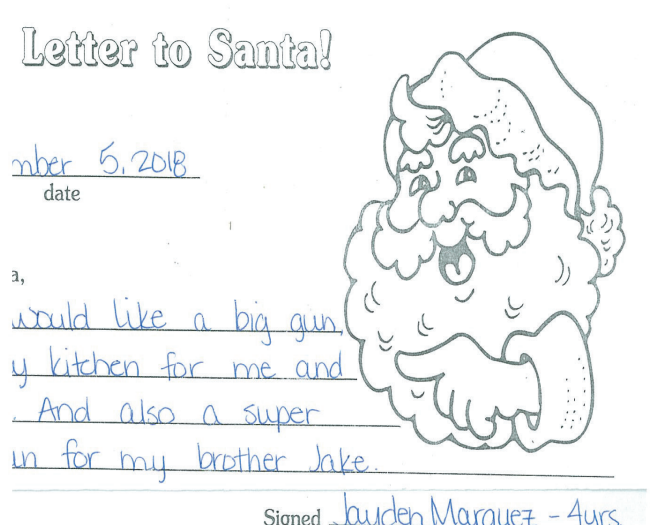 Letter to Santa!
mber 5, 2018
date
a,
would like a big gun,
y kitchen for me and
. And also a super
un for my brother Jake.
Signed Jayden Marquez - 4yrs